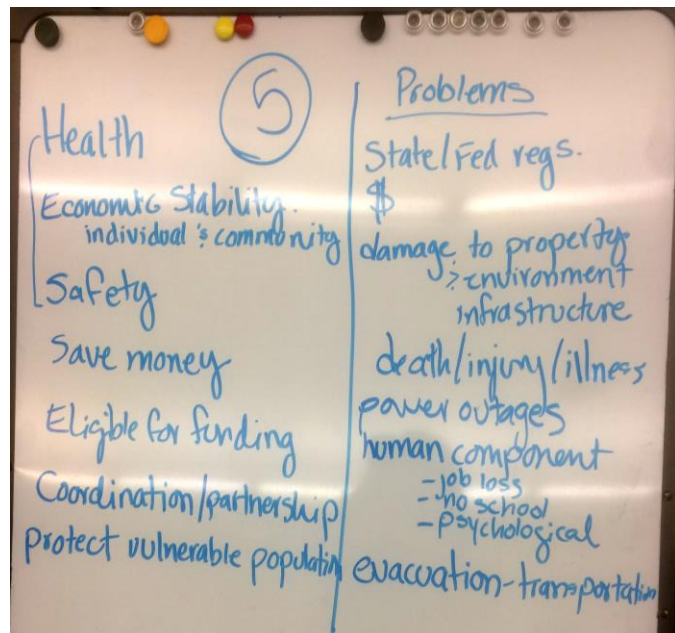 5
Health
Economic Stability.
individual & community
Safety
Save money
Eligible for funding
Coordination/partnership
protect vulnerable population
Problems
State/Fed regs.
$
damage to property
environment
infrastructure
death/injury/illness
power outages
human component
- job loss
- no school
- psychological
evacuation-transportation